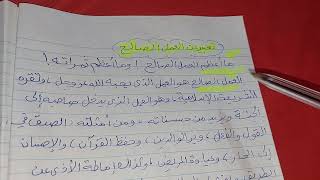 تعبير عن العمل الصالح
ما أعظم العمل الصالح ! وما أعظم ثمراته !
العمل الصالح هو العمل الذي يحبه الله عز وجل ، وتقره
الشريعة الإسلامية ، وهو العمل الذي يدخل صاحبه إلى
الجنة ويزيد من حسناته ، ومن أمثلته : الصدق في
القول والفعل ، وبر الوالدين ، وحفظ القرآن ، والإحسان
إلى الجار ، وعيادة المريض ، وكذلك إماطة الأذى عن
الطريق